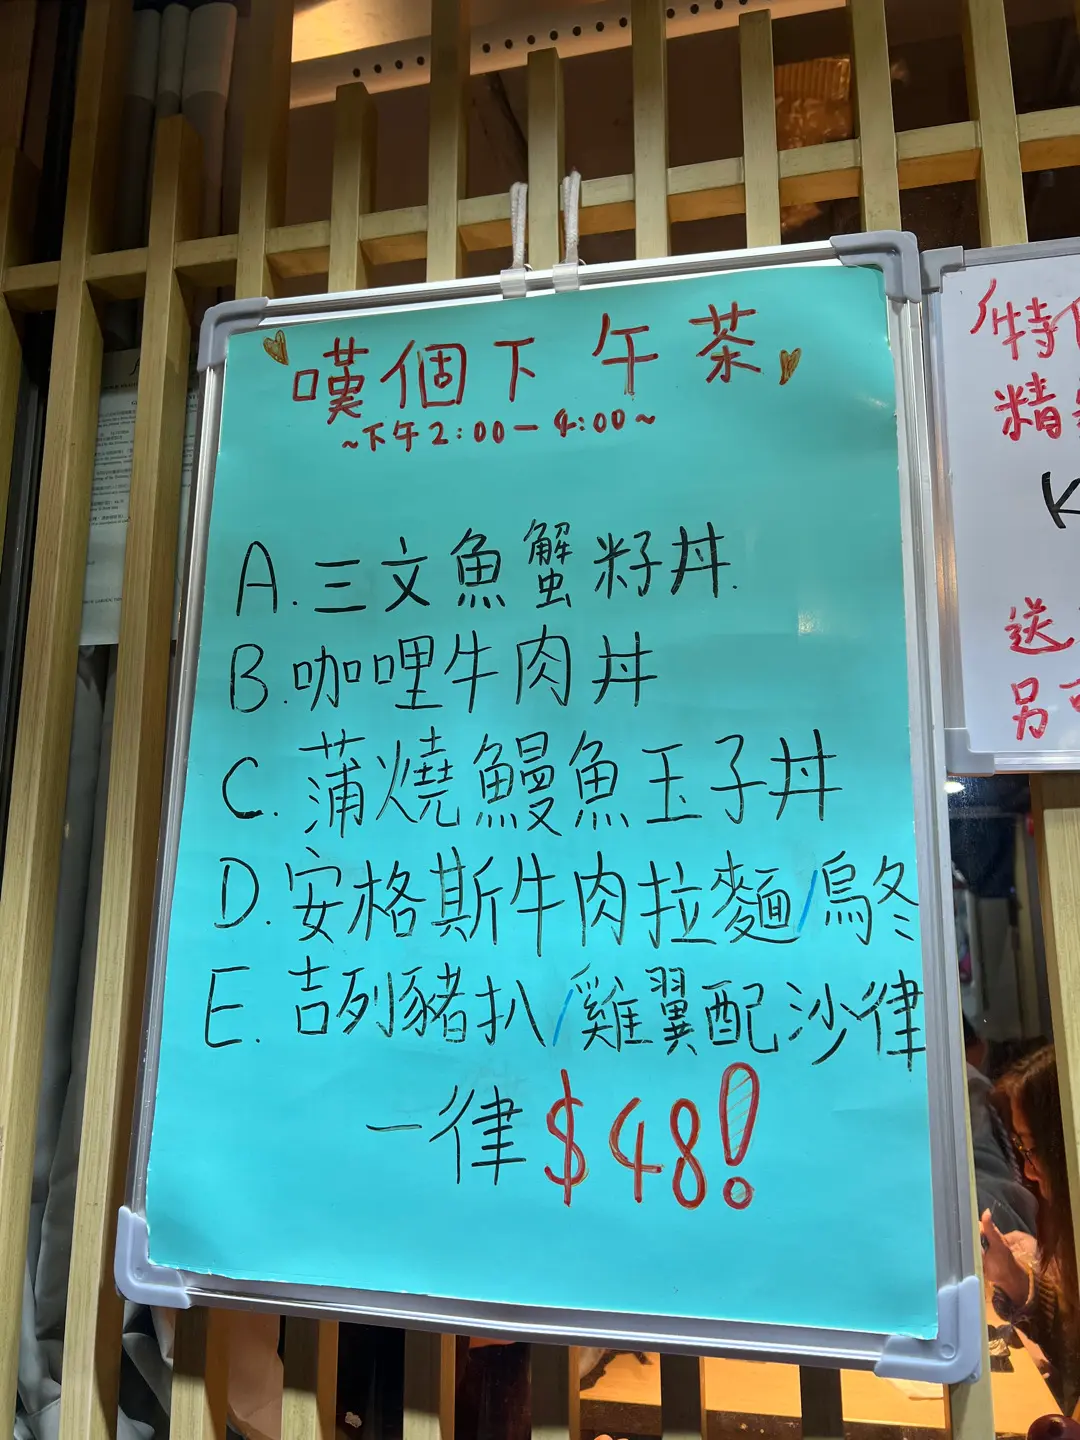 嘆個下午茶
~下午2:00-4:00~
A.三文魚蟹籽丼.
B.咖哩牛肉丼
C.蒲燒鰻魚玉子丼
D.安格斯牛肉拉麵/烏冬
E.吉列豬扒/雞翼配沙律
一律$48!
特
精
K
送
另